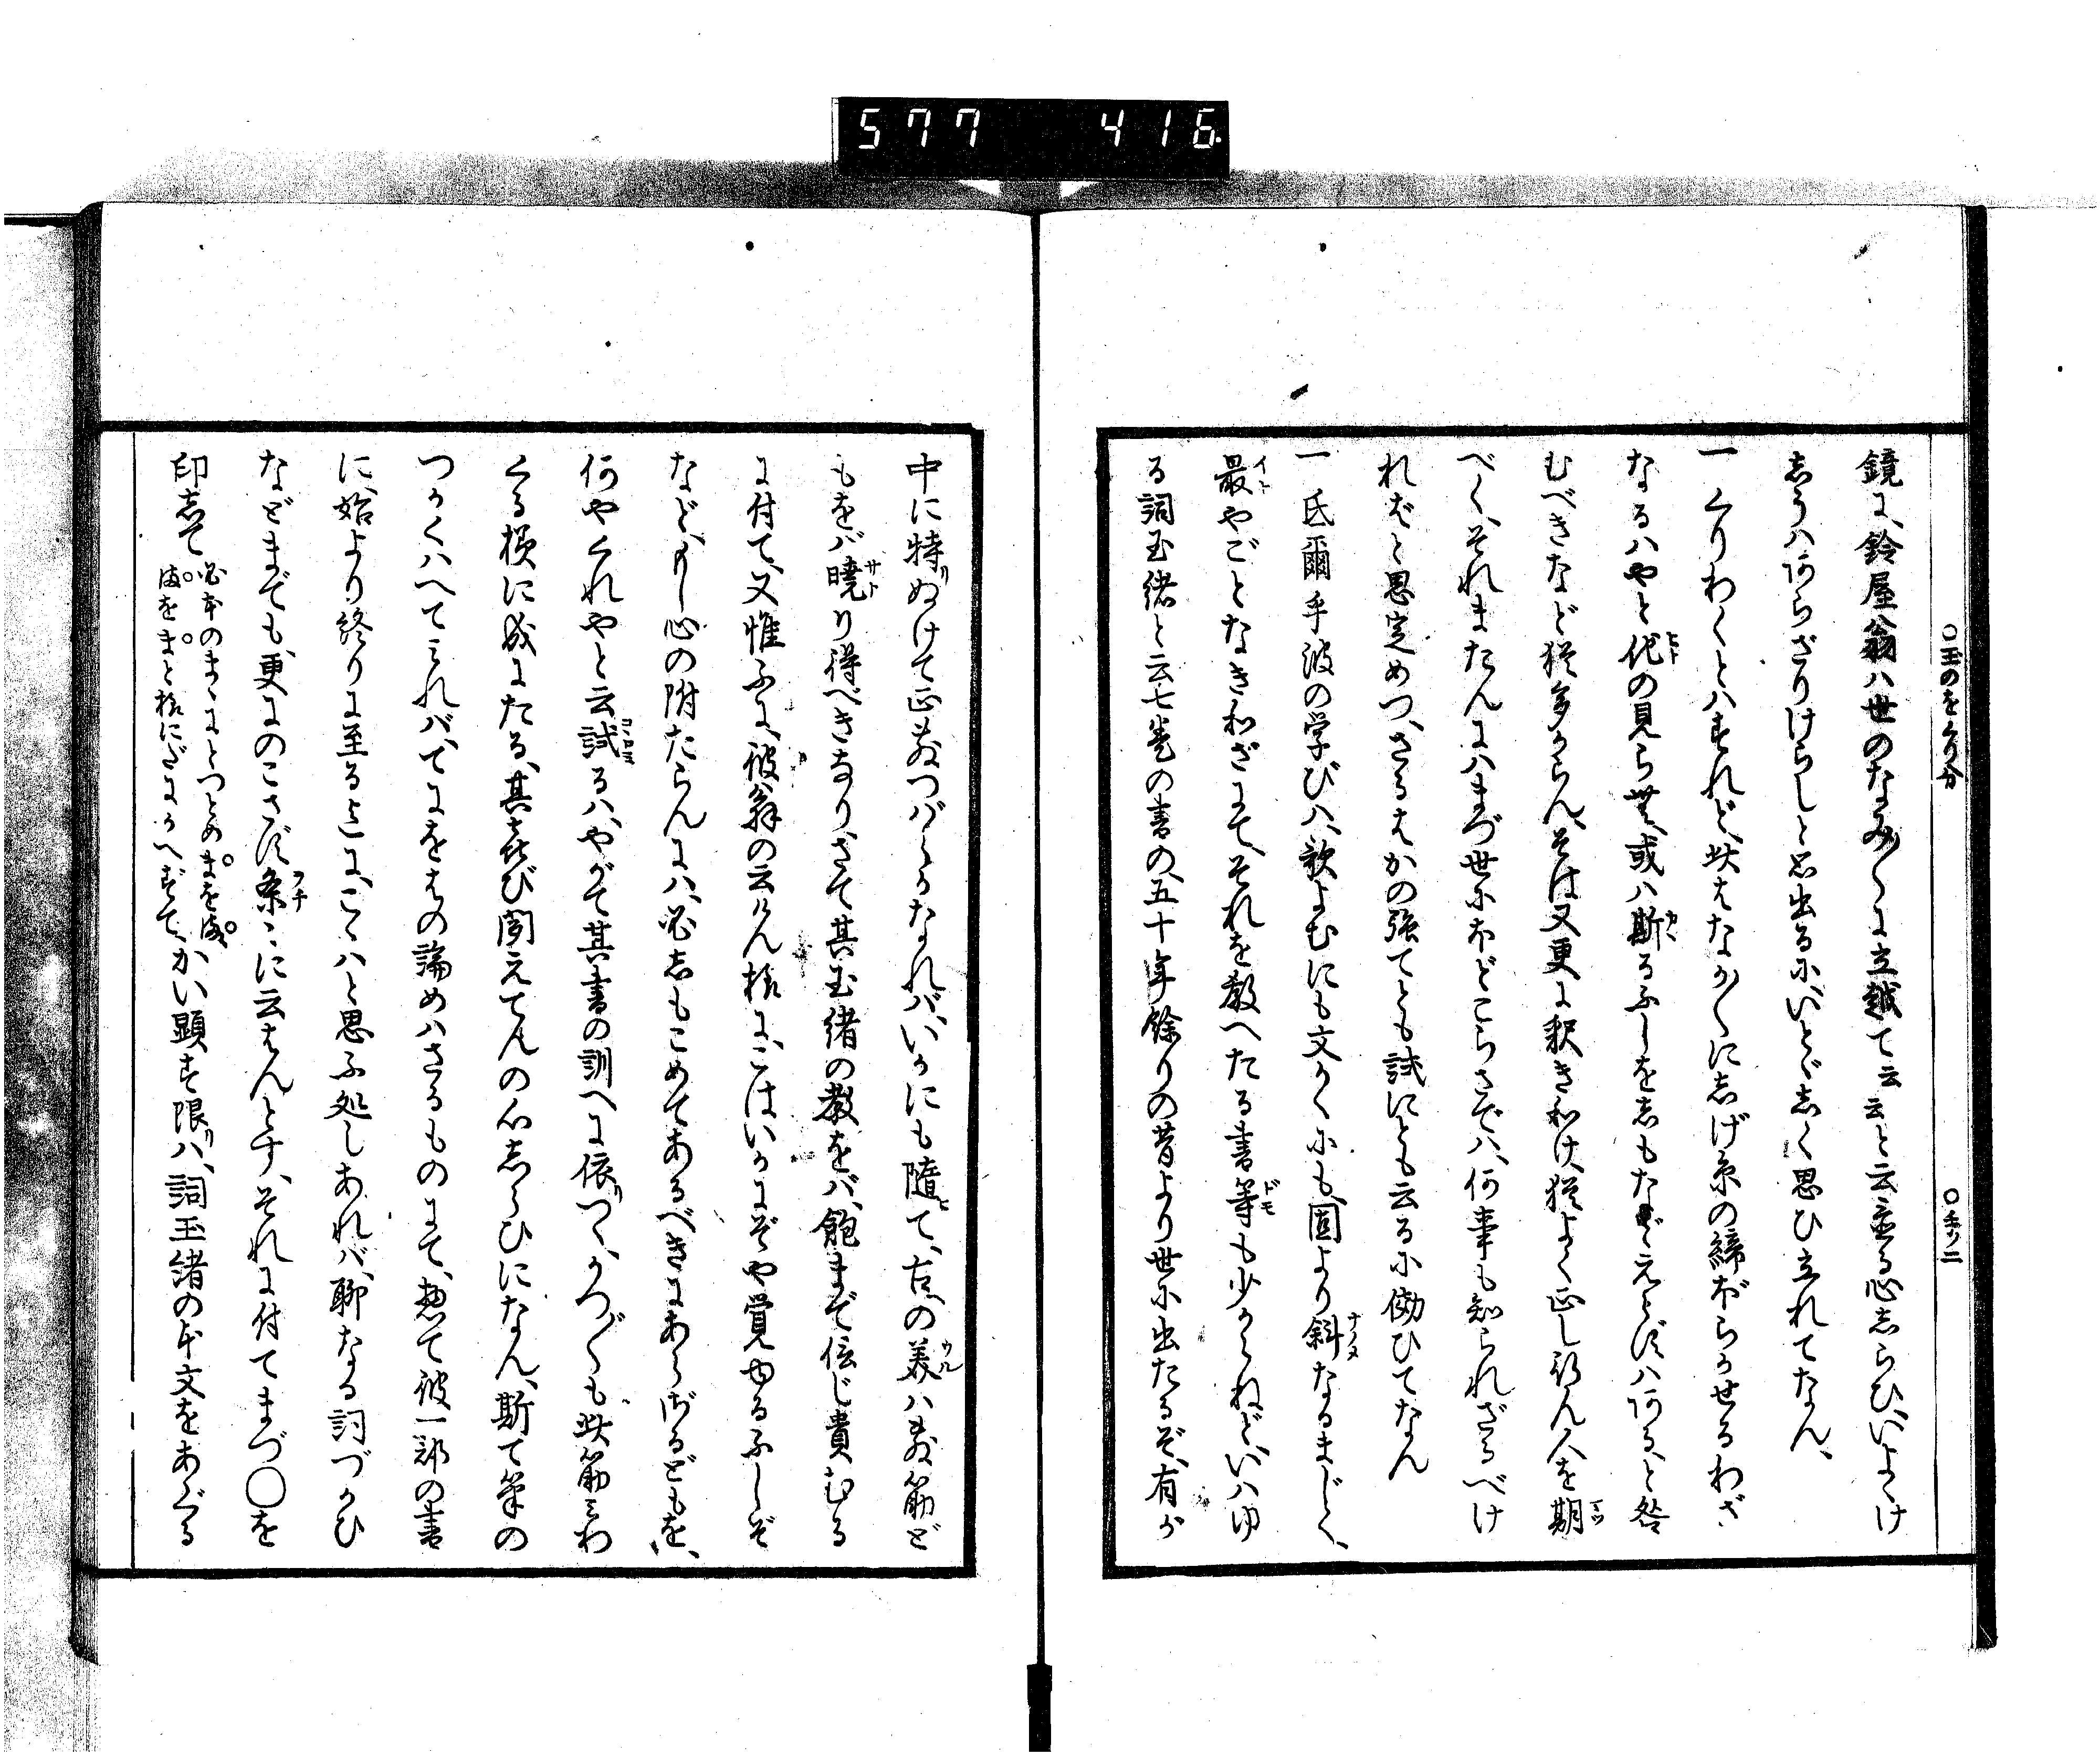 577 416
○玉のをくり分 ○手ノ二
鏡に、鈴屋翁ハ世のなみ〳〵に立越て云云と云金る心しらひ、いよゝけ
しうハあらざりけらしと思出るに、いとゞしく思ひ立れてなん、
一くりわくとハすれど、此はなか〳〵に志げ糸の締ぼらかせるわざ
なるハやと他の見ら世、或ハ斯るふしを志もなどえとずハある、と咎
むべきなど猶多からん、そは又更に釈き和け、猶よく正し祢ん人を期
べく、それまたんにハまづ世にほどこらさでハ、何事も知られざるべけ
ればと思定めつ、さるはかの強てとも試にとも云るに倣ひてなん
一氐爾乎波の学びハ、歌よむにも文かくにも、固より斜なるまじく、
最やごとなき和ざにて、それを教へたる書等も少からねど、いハゆ
る詞玉緒と云七巻の書の、五十年餘りの昔より世に出たるぞ、有が
中に特ぬけて正まつバらなれバ、いかにも隨て、古の美ハまつ筋ど
もをバ曉り得べきなり、さて其玉緒の教をバ、飽まで信じ貴むる
に付て、又惟ふに、彼翁の云けん様に、こはいかにぞや覚ゆるふしぞ
など、もし心の附たらんにハ、必志もこめてあるべきにあらざるどもを、
何やくれやと云試るハ、やがて其書の訓へに依つゝ、かつ〴〵も此筋こわ
くる様に成にたる、其喜び聞えてんの心志らひになん、斯て筆の
つゝくハへてこれバ、てにをはの論めハさるものにて、惣て彼一部の書
に、始より終りに至る迄に、こゝハと思ふ処しあれバ、聊なる詞づかひ
などまでも、更にのこさず条〻に云はんとす、それに付てまづ○を
印志て 必本のまゝにとつとめまを満
満をまと様にだにかへずて、 かい顕す限ハ、詞玉緒の本文をあぐる